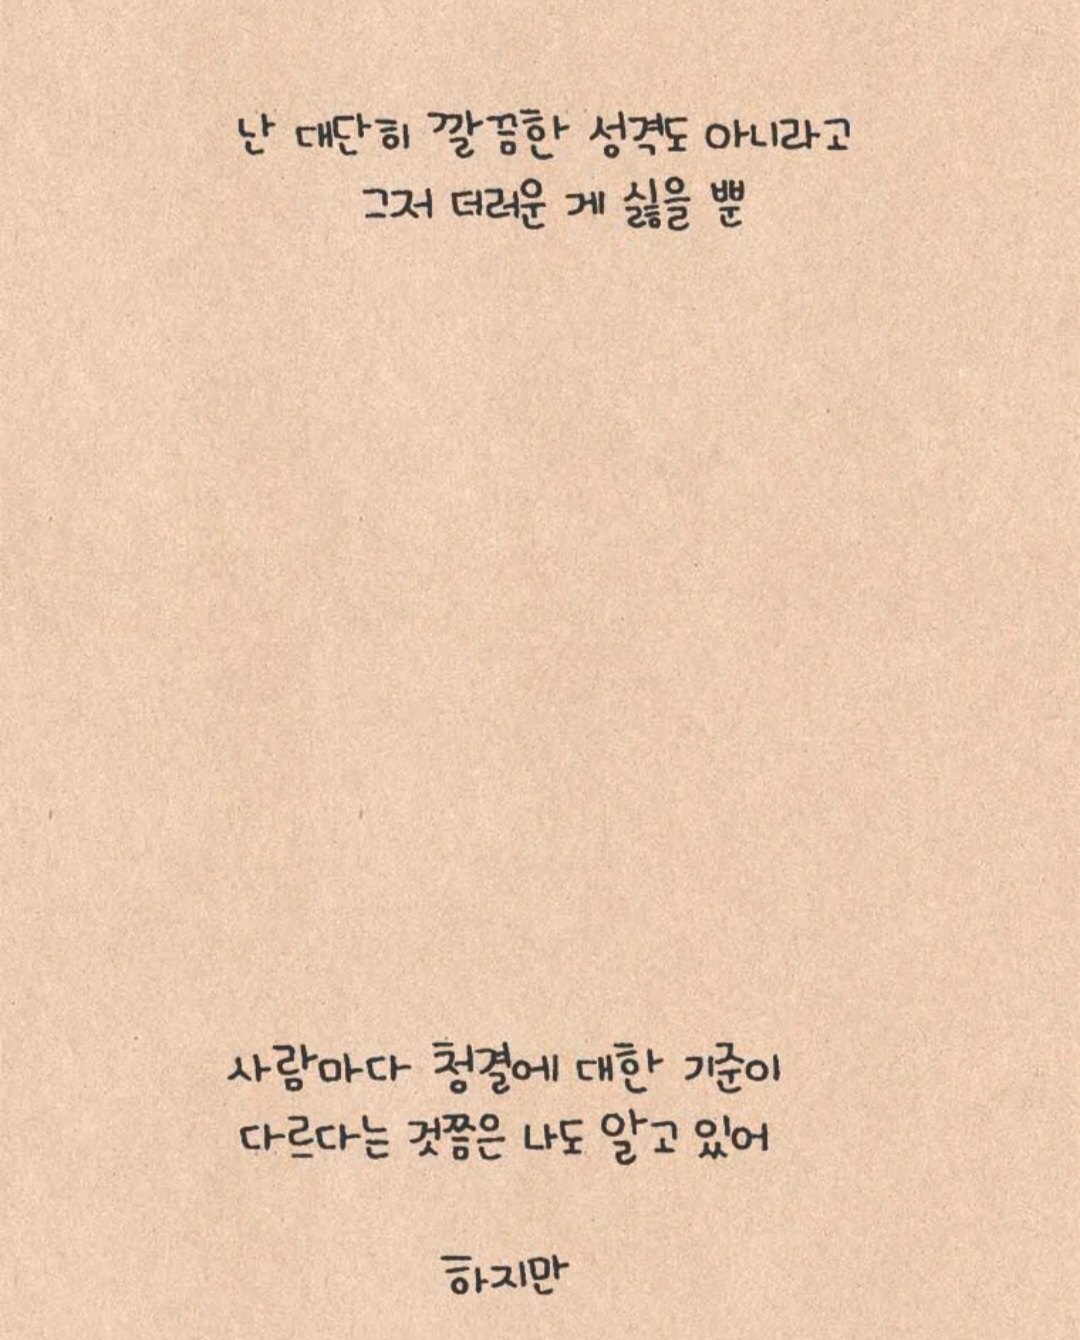 난 대단히 깔끔한 성격도 아니라고
그저 더러운 게 싫을 뿐
사람마다 청결에 대한 기준이
다르다는 것쯤은 나도 알고 있어
하지만